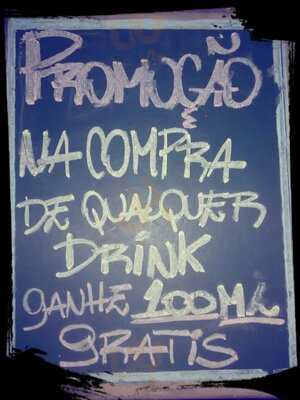 PROMOÇÃO
NA COMPRA
DE QUALQUER
DRINK
GANHE 200ML
GRATIS